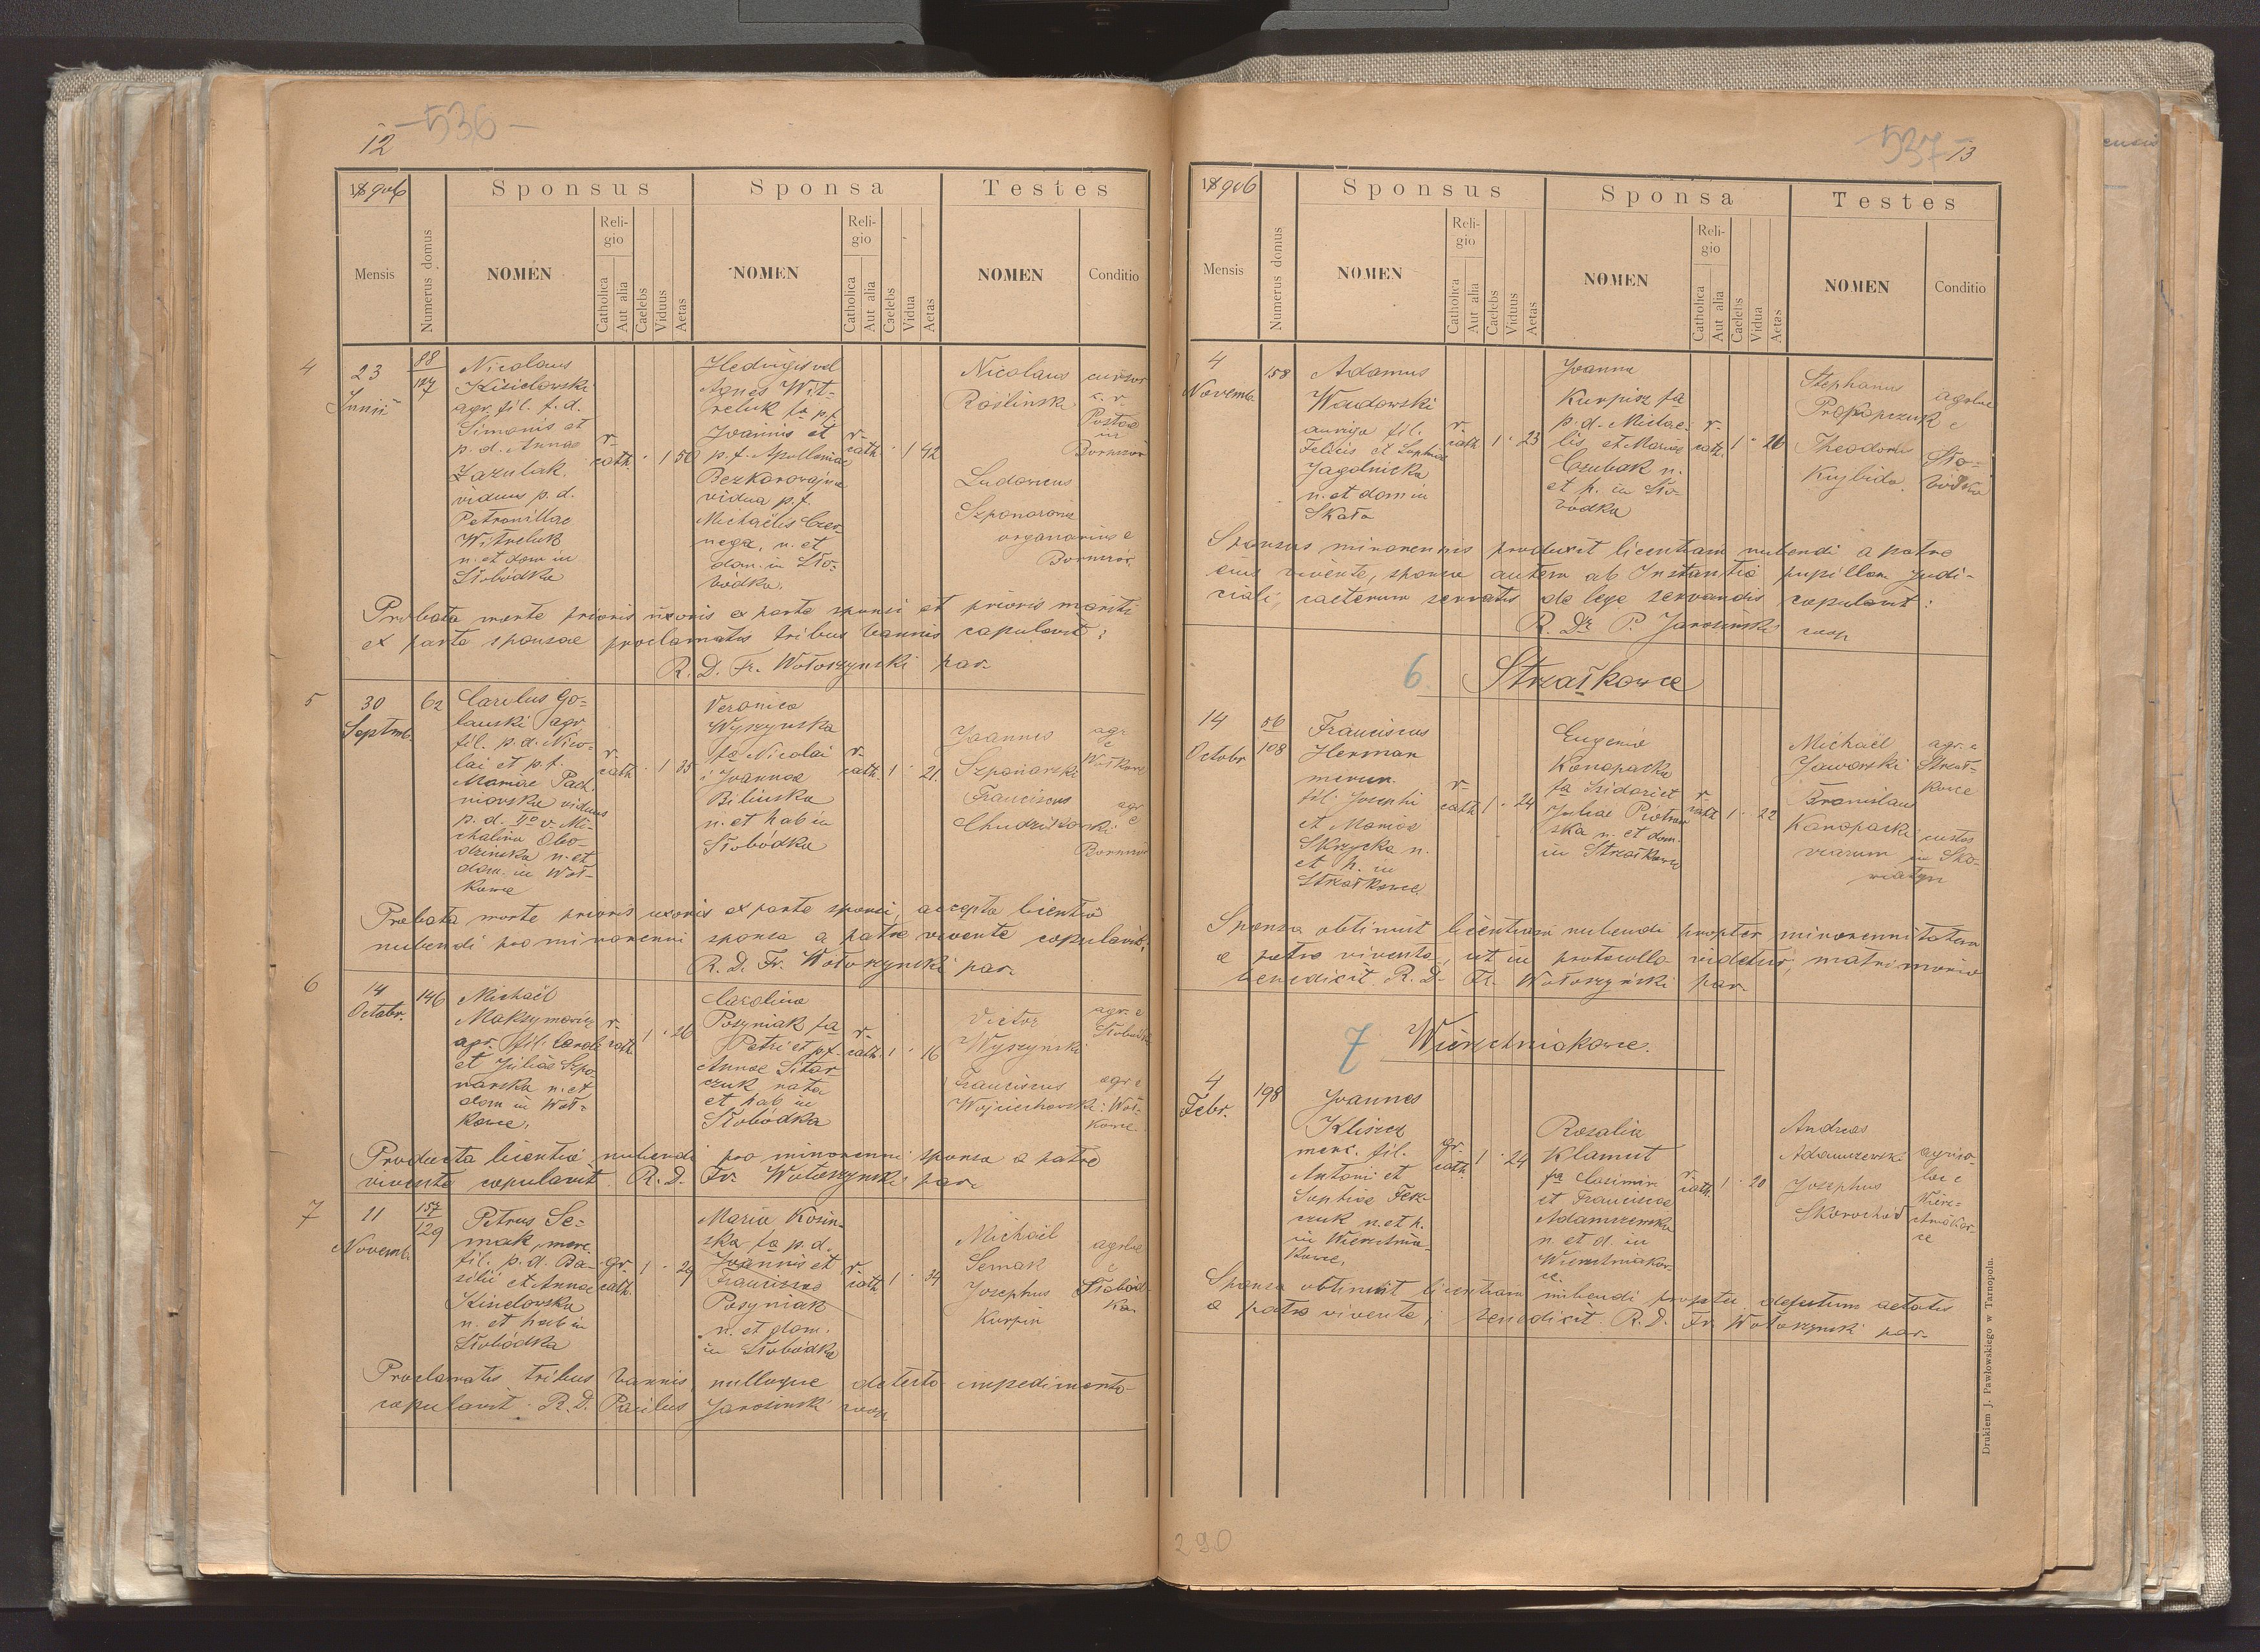 12 -536-
1906 Sponsus Sponsa Testes
Mensis Numerus domus NOMEN Religio Catholica Aut alia Caelebs Viduus Aetas NOMEN Religio Catholica Aut alia Caelebs Vidua Aetas NOMEN Conditio
4
23
Junii
88
127
Nicolaus
Kisielowski
agr. fil. p. d.
Simonis et
p. d. Annae
Zazulak
viduus p. d.
Petronillae
Witreluk
n. et dom in
Słobódka
r. cath. 1 50
Hedvigis vel
Agnes Wit-
reluk fa p. f.
Joannis et
p. f. Apolloniae
vidua p. f.
Michaëlis Czer-
nega, n. et
dom. in Sło-
bódka.
r. cath. 1 42
Nicolaus
Rośliński
Ludovicus
organarius e
Probata morte prioris uxoris ex parte sponsi et prioris mariti
ex parte sponsae proclamatis tribus bannis copulavit:
R. D. Fr. Wołoszyński par.
5
30
Septmb.
62
Carolus Go-
lauski agr.
fil. p. d. Nico-
lai et p. f.
Mariae Pach-
niowska viduus
p. d. IIo v. Mi-
chalina Obo-
dzinska n. et
dom. in Woł-
kowce
r. cath. 1 35
Veronica
Wyszynska
fa Nicolai
Joannae
Bilinska
n. et hab in
Słobódka
r. cath. 1 21.
Joannes
Szponarski
Franciscus
agr. e Wołkowce
agr e
Probata morte prioris uxoris ex parte sponsi, accepta licentia
nubendi pro minorenni sponsa a patre vivente copulavit:
R. D. Fr. Wołoszynski par.
6
14
Octobr.
146
Michaël
Maksymowicz
agr. fil. Caroli
et Juliae Szpo-
narska n. et
dom in Woł-
kowce.
r. cath. 1 26
Carolina
Posyniak fa
Petri et p. f.
Annae Sitar-
czuk nata
et hab in
Słobódka
r. cath. 1 16
Victor
Wyszynski
Franciscus
Wojciechowski
agr. e
Słobódka
agr. e
Woł-
kowce
Producta licentia nubendi pro minorenni sponsa a patre
vivente copulavit R. D. Fr. Wołoszynski par.
7
11
Novemb.
157
129
Petrus Se-
mak, merc.
fil. p. d. Ba-
silii et Annae
Kisielowska
n. et hab in
Słobódka
gr. cath. 1 29
Maria Kosin-
ska fa p. d.
Joannis et
Franciscae
Posyniak
n. et dom.
in Słobódka
r. cath. 1 34
Michaël
Semak
Josephus
Kurpin
agolae
e
Słobód-
ka
Proclamatis tribus bannis, nulloque detecto impedimento
copulavit. R. D. Paulus Jarosinski coop
537 13
1906 Sponsus Sponsa Testes
Mensis Numerus domus NOMEN Religio Catholica Aut alia Caelebs Viduus Aetas NOMEN Religio Catholica Aut alia Caelebs Vidua Aetas NOMEN Conditio
4
Novemb.
158
Adamus
Wandowski
auriga fil.
Felicis et Sophiae
Jagolnicka
n. et dom in
Skała
r. cath. 1 23
Joanna
Kurpisz fa
p. d. Michae-
lis et Mariae
Czubak n.
et h. in Sło-
bódka
r. cath. 1 26
Stephanus
Prokopczuk
Theodorus
Kujbida
agolae
e
Sło-
bódka
Sponsus minorennis produxit licentiam nubendi a patre
eius vivente, sponsa autem ab Instantia pupillari Judi-
ciali, caeterum servatis de lege servandis copulavit:
R. Dr. P. Jarosinski coop
6 Strzałkowce
14
Octobr
56
108
Franciscus
Herman
mercen.
fil. Josephi
et Mariae
Skrzycka n.
et h. in
Strzałkowce.
r. cath. 1 24
Eugenia
Konopacka
fa Isidori et
Juliae Piotrow-
ska n. et dom.
in Strzałkowce
r. cath. 1 22
Michaël
Jaworski
Bronislaus
Konopacki
viarum
agr. e
Strzał-
kowce
custos
Sponsa obtinuit licentiam nubendi propter minorennitatem
a patre vivente, ut in protocollo videtur, matrimonio
benedixit R. D. Fr. Wołoszyński par.
7 Wierzchniakowce.
4
Febr.
198
Joannes
Kliszcz
merc. fil.
Antonii et
Sophiae Fer-
czuk n. et h.
in Wierzchnia-
kowce.
gr. cath. 1 24
Rosalia
Klamut
fa Casimiri
et Franciscae
Adamczewska
n. et d. in
Wierzchniakow-
ce.
r. cath. 1 20
Andreas
Adamczewski
Josephus
Skorochód
agrico-
lae e
Wierz-
chniakow-
ce
Sponsa obtinuit licentiam nubendi propter defectum aetatis
a patre vivente, benedixit. R. D. Fr. Wołoszynski par.
Drukiem J. Pawłowskiego w Tarnopolu.
290